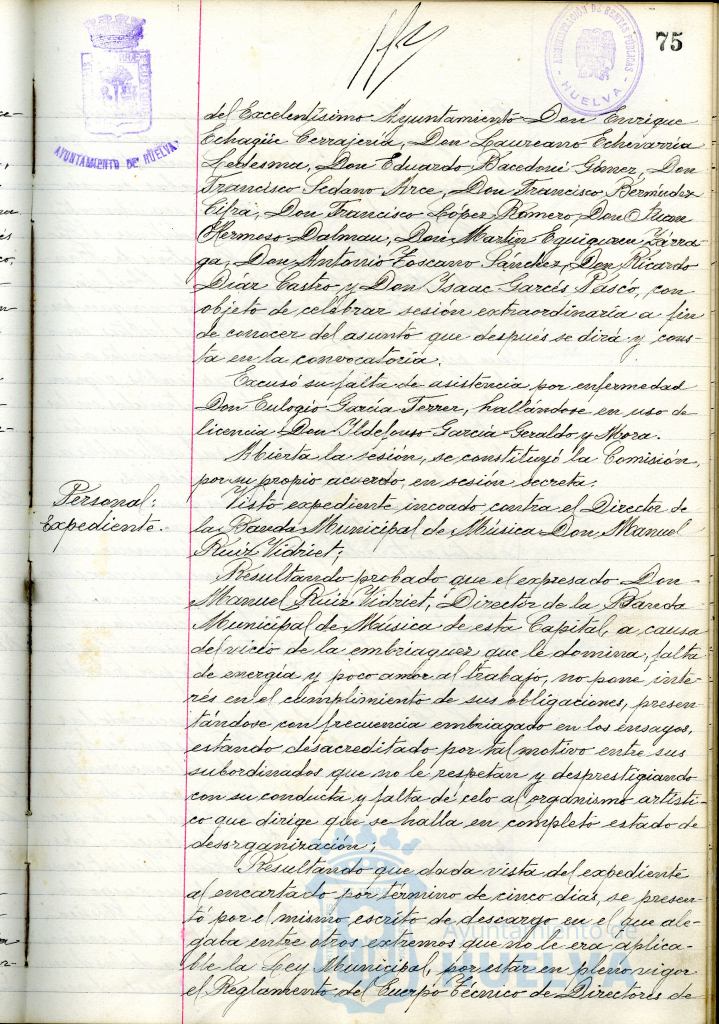 75
AYUNTAMIENTO DE HUELVA
ADMINISTRACIÓN DE RENTAS PÚBLICAS
HUELVA
del Excelentísimo Ayuntamiento Don Enrique
Echagüe Cerrajería, Don Laureano Echevarría
Ledesma, Don Eduardo Bacedoni Gómez, Don
Francisco Sedano Arce, Don Francisco Bermúdez
Cifra, Don Francisco López Romero, Don Juan
Hermoso Dalmau, Don Martín Eguiguren Larra-
ga, Don Antonio Toscano Sánchez, Don Ricardo
Díaz Castro y Don Isaac Garcés Pasco, con
objeto de celebrar sesión extraordinaria a fin
de conocer del asunto que después se dirá y cons-
ta en la convocatoria.
Excusó su falta de asistencia por enfermedad
Don Eulogio García Ferrer, hallándose en uso de
licencia Don Ildefonso García Geraldo y Mora.
Abierta la sesión, se constituyó la Comisión,
por su propio acuerdo, en sesión secreta.
Personal:
Expediente.
Visto expediente incoado contra el Director de
la Banda Municipal de Música Don Manuel
Ruiz Vidriet;
Resultando probado que el expresado Don
Manuel Ruiz Vidriet, Director de la Banda
Municipal de Música de esta Capital, a causa
del vicio de la embriaguez que le domina, falta
de energía y poco amor al trabajo, no pone inte-
rés en el cumplimiento de sus obligaciones, presen-
tándose con frecuencia embriagado en los ensayos,
estando desacreditado por tal motivo entre sus
subordinados que no le respetan y desprestigiando
con su conducta y falta de celo al organismo artísti-
co que dirige que se halla en completo estado de
desorganización;
Resultando que dada vista del expediente
al encartado por término de cinco días, se presen-
tó por el mismo escrito de descargo en el que ale-
gaba entre otros extremos que no le era aplica-
ble la Ley Municipal, por estar en pleno vigor
el Reglamento del Cuerpo Técnico de Directores de
Ayuntamiento de
HUELVA